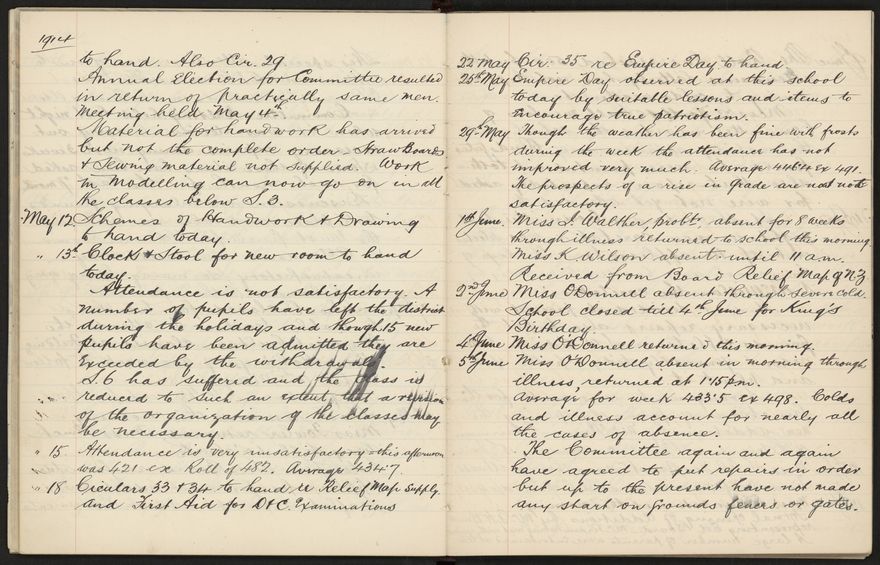 1914
to hand. Also Cir. 29.
Annual Election for Committee resulted
in return of practically same men.
Meeting held May 4th
Material for handwork has arrived
but not the complete order - Straw Boards
& Sewing material not supplied. Work
in modelling can now go on in all
the classes below S.3.
May 12. Schemes of Handwork & Drawing
to hand today.
" 13th Clock & Stool for new room to hand
today.
Attendance is not satisfactory. A
number of pupils have left the district
during the holidays and though 15 new
pupils have been admitted they are
exceeded by the withdrawals.
S.6 has suffered and the class is
reduced to such an extent that a revision
of the organization of the classes may
be necessary.
" 15 Attendance is very unsatisfactory - this afternoon
was 421 ex Roll of 482. Average 434.7.
" 18 Circulars 33 & 34 to hand re Relief Map Supply.
and First Aid for D & C. Examinations
22 May Cir. 35 re Empire Day to hand
25th May Empire Day observed at this school
today by suitable lessons and items to
encourage true patriotism.
29th May Though the weather has been fine with frosts
during the week the attendance has not
improved very much. Average 446.4 ex 491.
The prospects of a rise in grade are not
satisfactory.
1st June. Miss J. Walther, probr. absent for 8 weeks
through illness returned to school this morning.
Miss K. Wilson absent until 11 a.m.
Received from Board Relief Map of N.Z.
2nd June Miss O'Donnell absent through severe cold.
School closed till 4th June for King's
Birthday.
4th June Miss O'Donnell returned this morning.
5th June Miss O'Donnell absent in morning through
illness, returned at 1.15 pm.
Average for week 433.5 ex 498. Colds
and illness account for nearly all
the cases of absence.
The Committee again and again
have agreed to put repairs in order
but up to the present have not made
any start on grounds fences or gates.